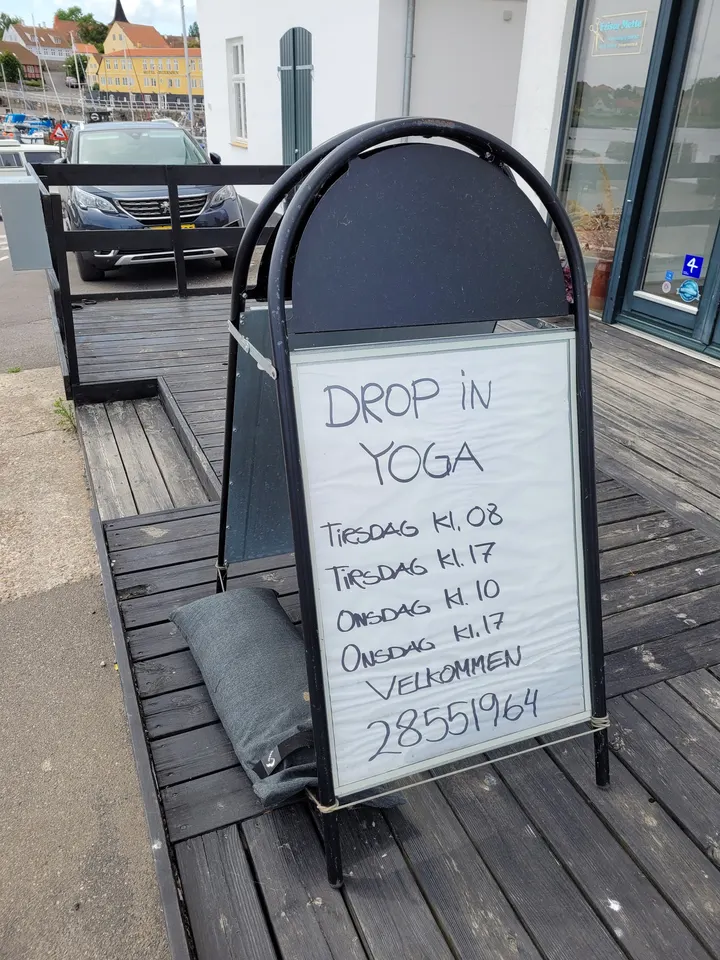 DROP iN
YOGA
TIRSDAG Kl. 08
TIRSDAG Kl. 17
ONSDAG Kl. 10
ONSDAG Kl. 17
VELKOMMEN
28551964
4